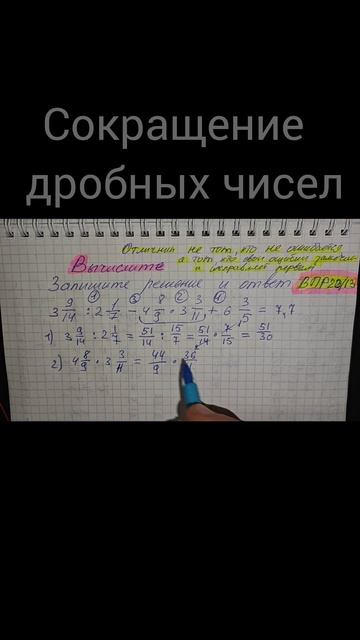 Сокращение
дробных чисел
Отличник не тот, кто не ошибается
а тот кто свои ошибки замечает
и исправляет первым
Вычислите
Запишите решение и ответ ВПР
① ③ ② ④
3 9/14 : 2 1/7 - 4 8/9 · 3 3/11 + 6 3/5 = 7,7
1) 3 9/14 : 2 1/7 = 51/14 : 15/7 = 51/14 · 7/15 = 51/30
2) 4 8/9 · 3 3/11 = 44/9 · 36